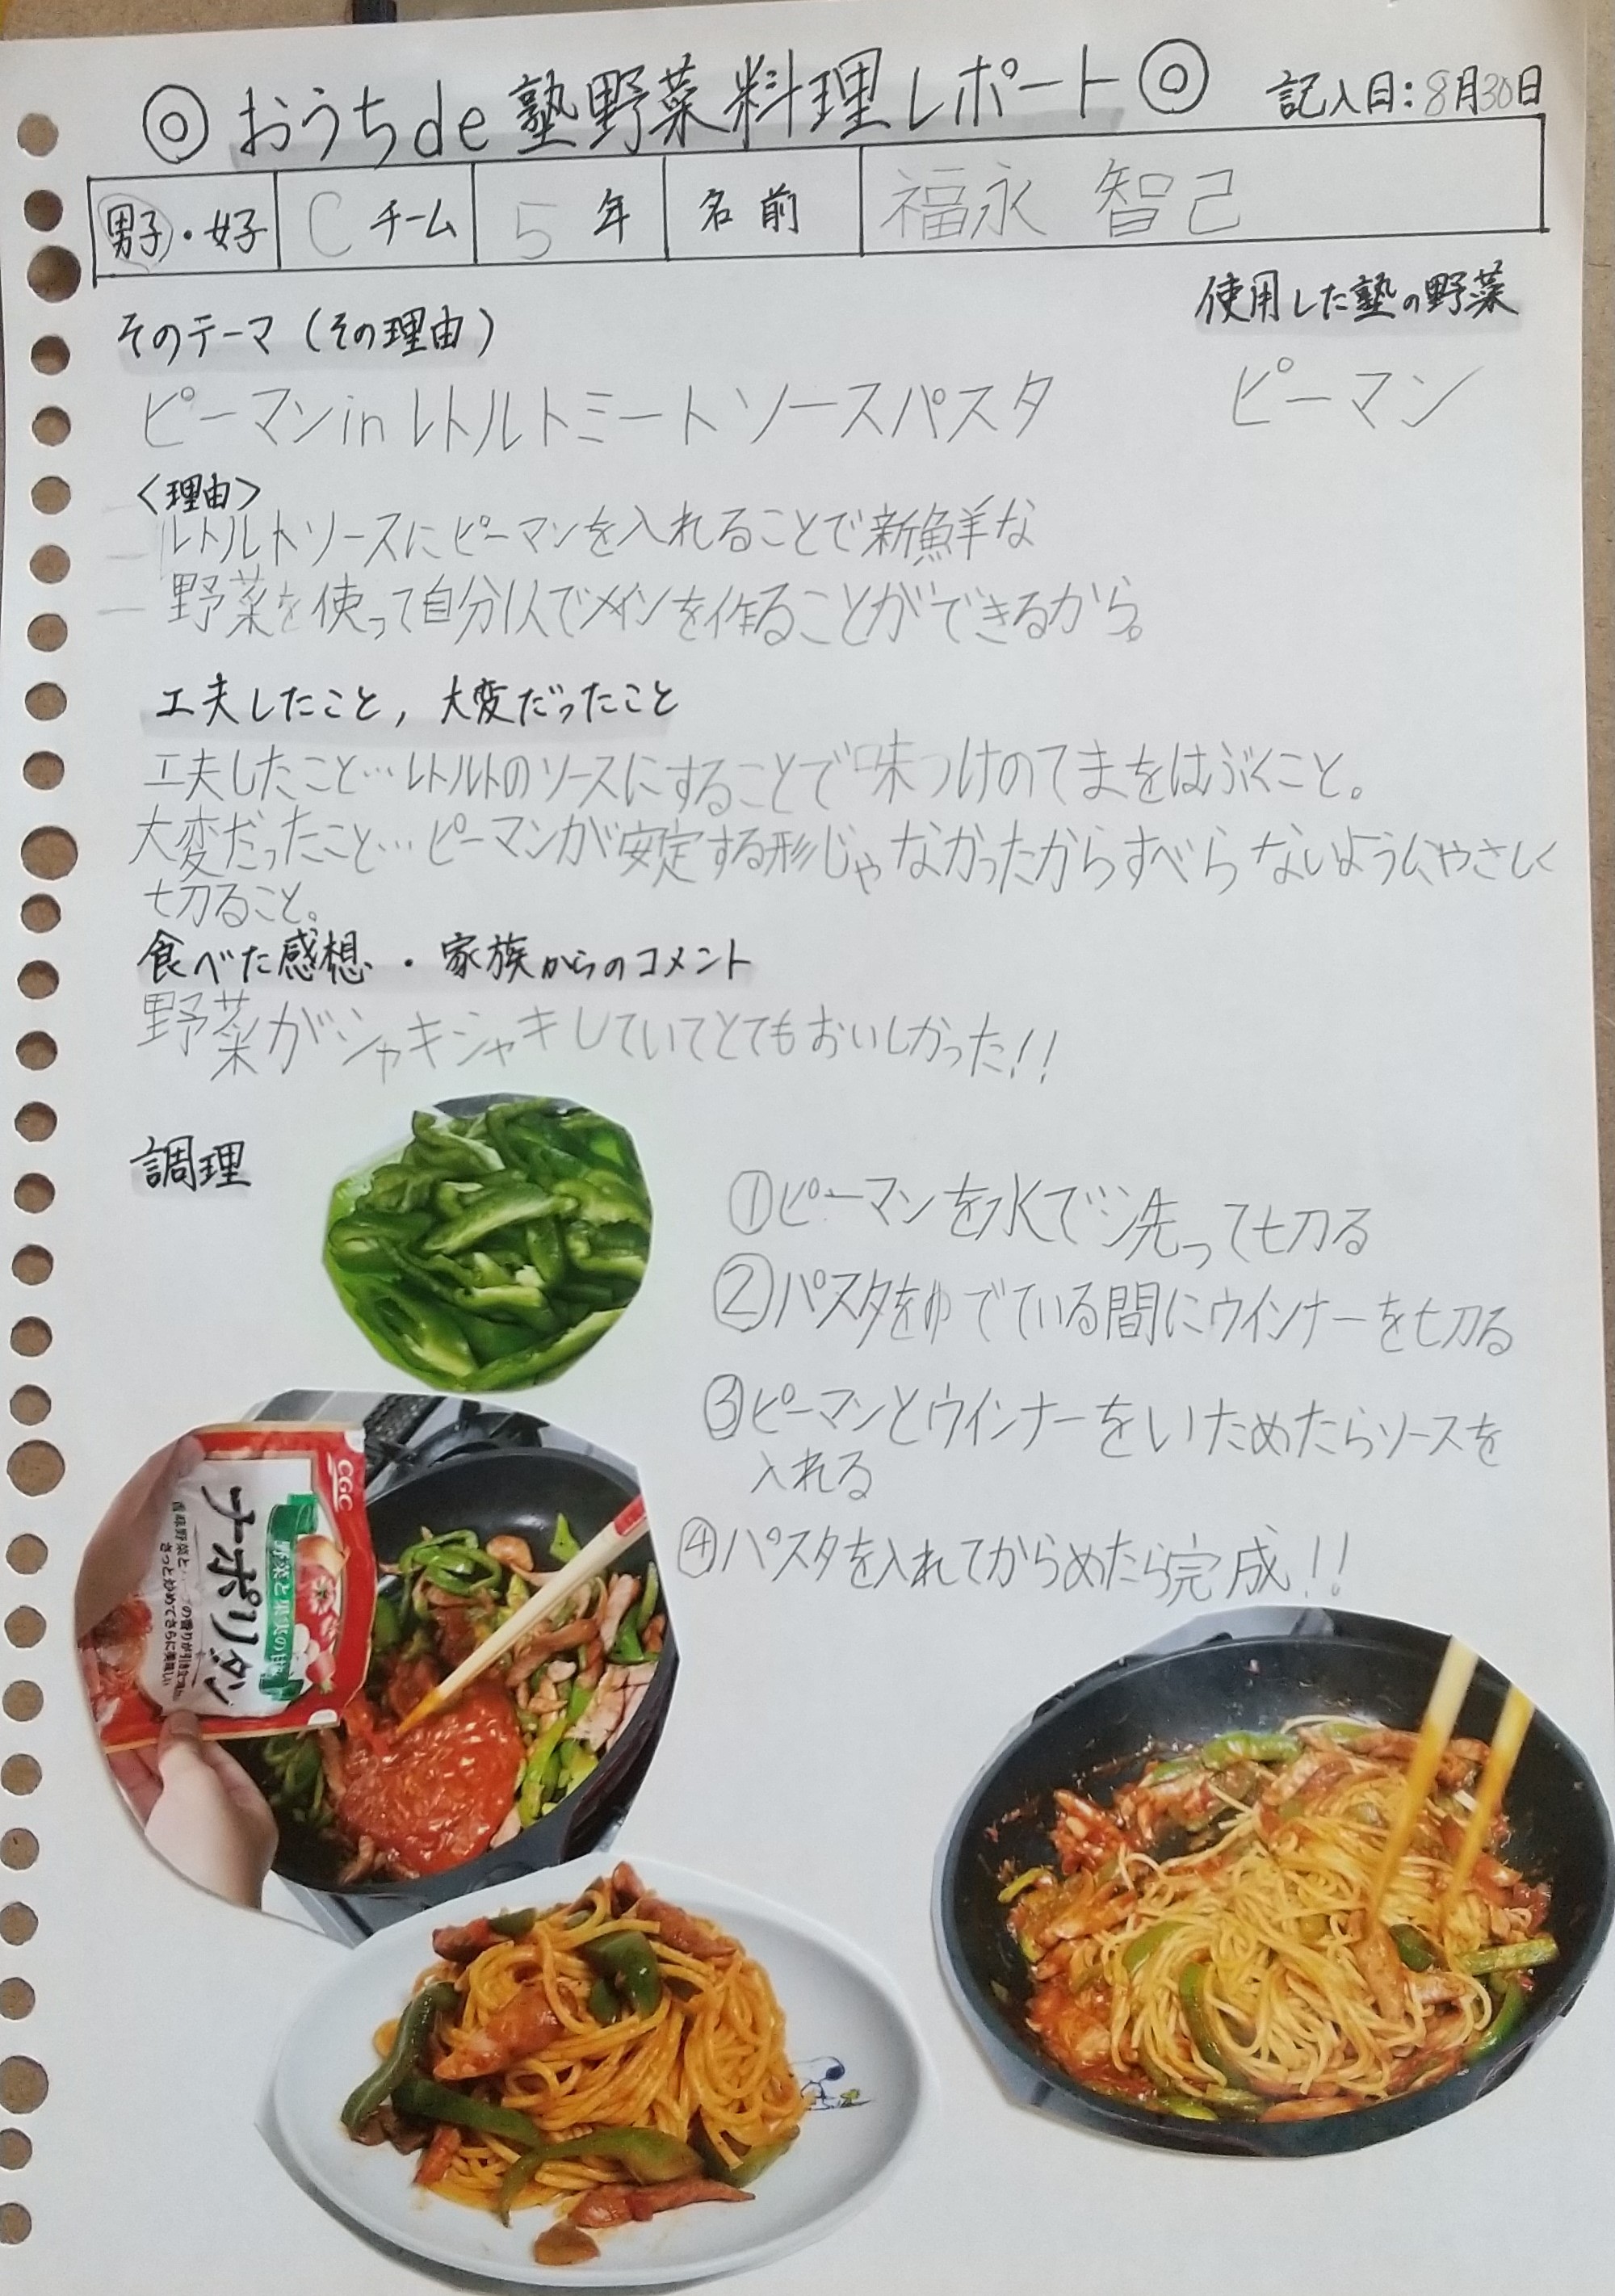 ◎おうちde塾野菜料理レポート◎ 記入日:8月30日
男子・女子 Cチーム 5年 名前 福永 智己
そのテーマ(その理由) 使用した塾の野菜
ピーマンinレトルトミートソースパスタ ピーマン
<理由>
レトルトソースにピーマンを入れることで新鮮な
野菜を使って自分1人でメインを作ることができるから。
工夫したこと,大変だったこと
工夫したこと…レトルトのソースにすることで味つけのてまをはぶくこと。
大変だったこと…ピーマンが安定する形じゃなかったからすべらないようにやさしく
切ること。
食べた感想・家族からのコメント
野菜がシャキシャキしていてとてもおいしかった!!
調理
①ピーマンを水で洗って切る
②パスタをゆでている間にウインナーを切る
③ピーマンとウインナーをいためたらソースを
入れる
④パスタを入れてからめたら完成!!
CGC
野菜と果実の甘
ナポリタン
さっと炒めてさらに美味しい